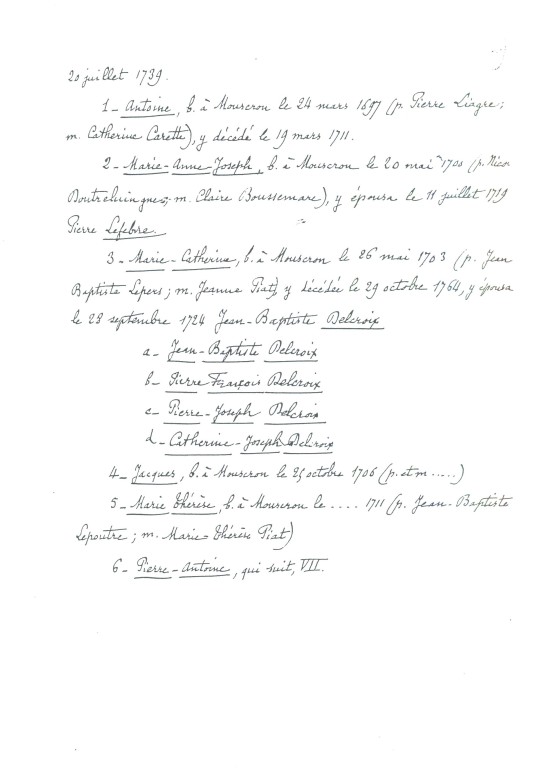 20 juillet 1739.
1 - Antoine, b. à Mouscron le 24 mars 1697 (p. Pierre Liagre;
m. Catherine Carette), y décédé le 19 mars 1711.
2 - Marie-Anne-Joseph, b. à Mouscron le 20 mai 1700 (p. Nico
Doutreluingne; m. Claire Boussemare), y épousa le 11 juillet 1719
Pierre Lefebre.
3 - Marie-Catherine, b. à Mouscron le 26 mai 1703 (p. Jean
Baptiste Lepers; m. Jeanne Piat), y décédée le 29 octobre 1764, y épousa
le 28 septembre 1724 Jean-Baptiste Delcroix
a - Jean-Baptiste Delcroix
b - Pierre François Delcroix
c - Pierre-Joseph Delcroix
d - Catherine-Joseph Delcroix
4 - Jacques, b. à Mouscron le 25 octobre 1706 (p. et m .....)
5 - Marie Thérèse, b. à Mouscron le .... 1711 (p. Jean-Baptiste
Lepoutre; m. Marie-Thérèse Piat)
6 - Pierre-Antoine, qui suit, VII.